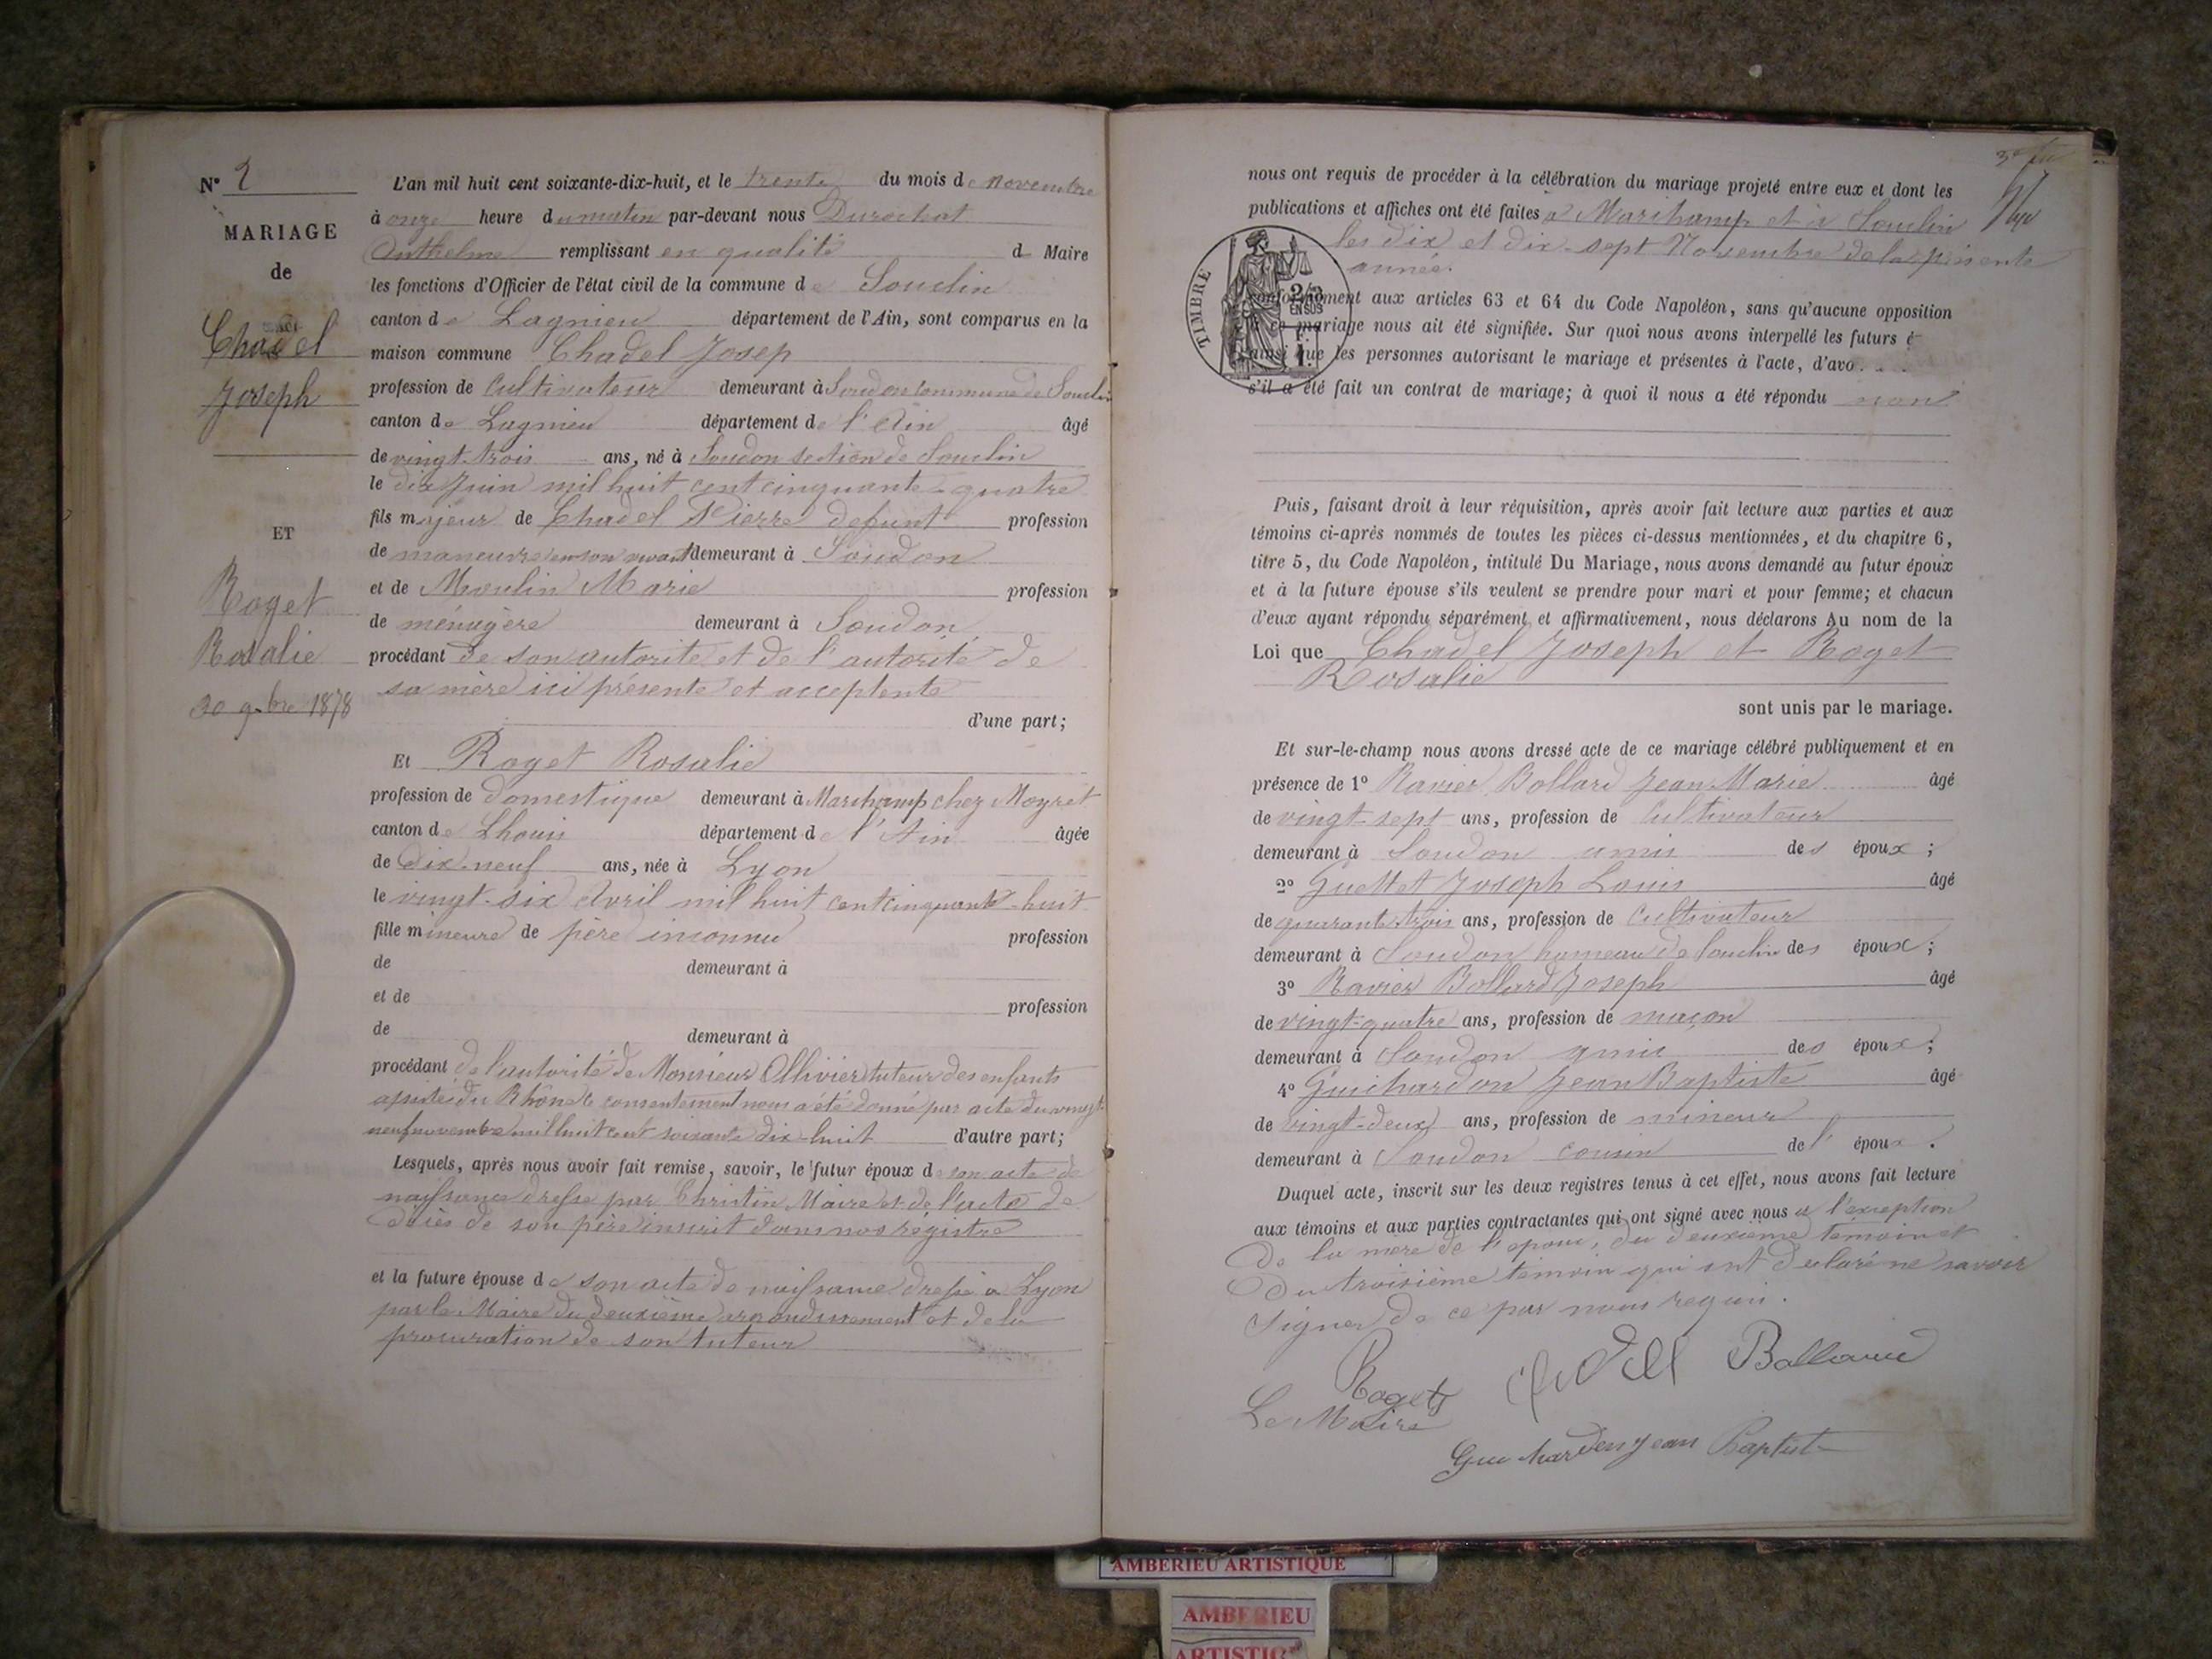 N° 2
MARIAGE
de
Chadel
Joseph
ET
Roget
Rosalie
30 9bre 1878
L'an mil huit cent soixante-dix-huit, et le trente du mois de novembre
à onze heure du matin par-devant nous Durochat
Anthelme remplissant en qualité d Maire
les fonctions d'Officier de l'état civil de la commune de Souclin
canton de Lagnieu département de l'Ain, sont comparus en la
maison commune Chadel Josep
profession de Cultivateur demeurant à Soudon Commune de Souclin
canton de Lagnieu département de l'Ain âgé
de vingt-trois ans, né à Soudon section de Souclin
le dix Juin mil huit cent cinquante-quatre
fils majeur de Chadel Pierre defunt profession
de maneuvre en son vivant demeurant à Soudon
et de Moulin Marie profession
de ménagère demeurant à Soudon
procédant de son autorité et de l'autorité de
sa mère ici présente et acceptente
d'une part;
Et Roget Rosalie
profession de domestique demeurant à Marchamp chez Moyret
canton de Lhouis département de l'Ain âgée
de dix-neuf ans, née à Lyon
le vingt-six Avril mil huit cent cinquante-huit
fille mineure de père inconnu profession
de demeurant à
et de profession
de demeurant à
procédant de l'autorité de Monsieur Ollivier tuteur des enfants
du Rhône le consentement nous a été donné par acte du vingt
neuf novembre mil huit cent soixante dix-huit d'autre part;
Lesquels, après nous avoir fait remise, savoir, le futur époux de son acte de
naissance dressé par Christin Maire et de l'acte de
décès de son père inscrit dans nos régistre
et la future épouse de son acte de naissance dressé à Lyon
par le Maire du deuxième arrondissement et de la
procuration de son tuteur
nous ont requis de procéder à la célébration du mariage projeté entre eux et dont les
publications et affiches ont été faites à Marchamp et à Souclin
les dix et dix-sept Novembre de la présente
année.
TIMBRE
2/10
EN SUS
conformément aux articles 63 et 64 du Code Napoléon, sans qu'aucune opposition
à ce mariage nous ait été signifiée. Sur quoi nous avons interpellé les futurs é
ainsi que les personnes autorisant le mariage et présentes à l'acte, d'avo
s'il a été fait un contrat de mariage; à quoi il nous a été répondu non
Puis, faisant droit à leur réquisition, après avoir fait lecture aux parties et aux
témoins ci-après nommés de toutes les pièces ci-dessus mentionnées, et du chapitre 6,
titre 5, du Code Napoléon, intitulé Du Mariage, nous avons demandé au futur époux
et à la future épouse s'ils veulent se prendre pour mari et pour femme; et chacun
d'eux ayant répondu séparément et affirmativement, nous déclarons Au nom de la
Loi que Chadel Joseph et Roget
Rosalie
sont unis par le mariage.
Et sur-le-champ nous avons dressé acte de ce mariage célébré publiquement et en
présence de 1° Ravier Bollard Jean Marie âgé
de vingt-sept ans, profession de Cultivateur
demeurant à Soudon amis des époux;
2° Guettet Joseph Louis âgé
de quarant trois ans, profession de Cultivateur
demeurant à Soudon hameau de Souclin des époux;
3° Ravier Bollard Joseph âgé
de vingt-quatre ans, profession de maçon
demeurant à Soudon amis des époux;
4° Guichardon Jean Baptiste âgé
de vingt-deux ans, profession de mineur
demeurant à Soudon cousin de l' époux.
Duquel acte, inscrit sur les deux registres tenus à cet effet, nous avons fait lecture
aux témoins et aux parties contractantes qui ont signé avec nous a l'exception
De la mère de l'époux, du deuxième temoin et
Du troisième temoin qui ont declaré ne savoir
Signer de ce par nous requis.
Roget Chadel Bollard
Le Maire
Guichardon Jean Baptist
AMBERIEU ARTISTIQUE
AMBERIEU
ARTISTIQ